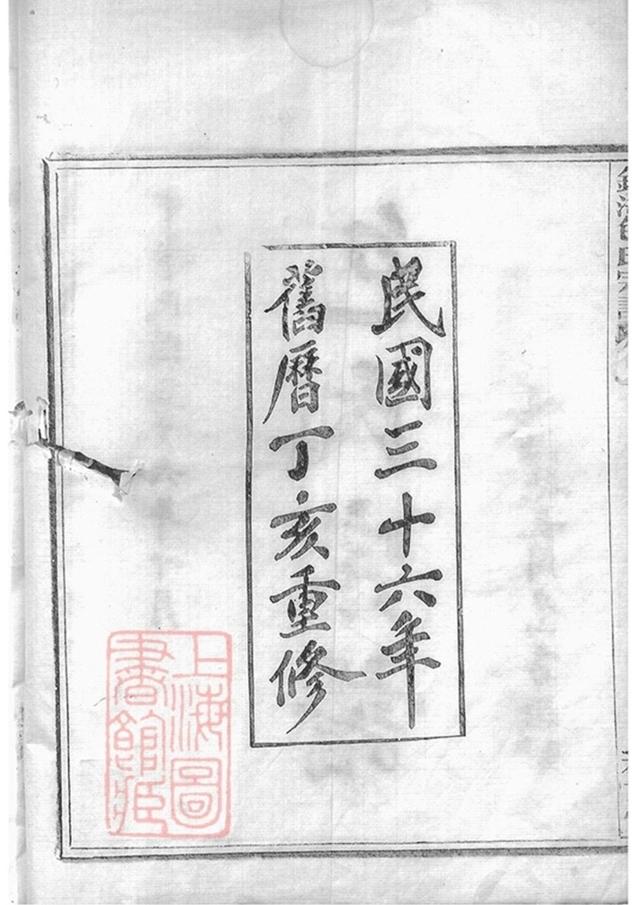 民國三十六年
舊曆丁亥重修
上海圖
書館藏